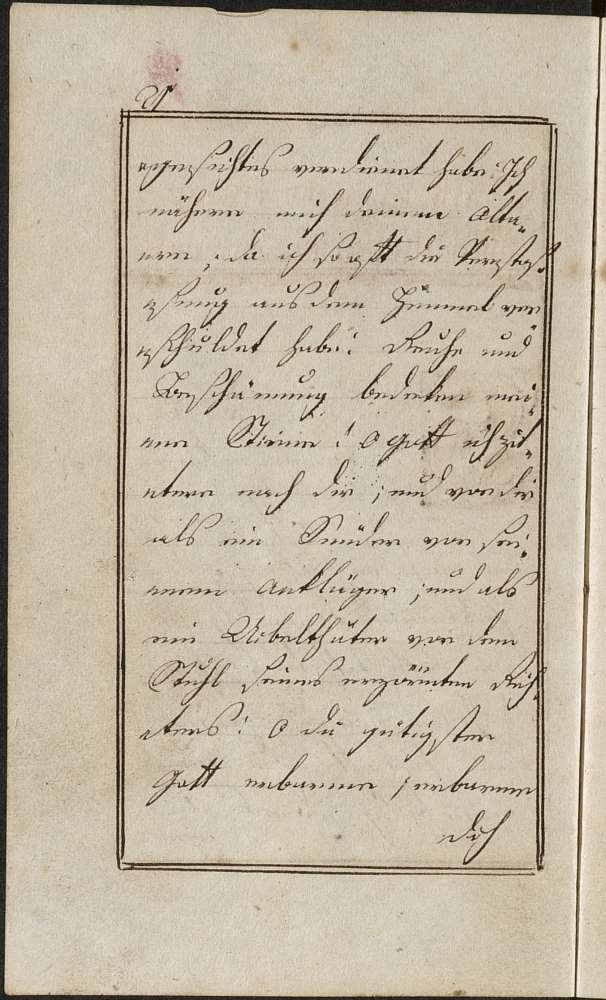 angesichtes verdienet habe: Ich
nähere mich deinem Alta„
ren, da ich so oft die Verstos„
sung aus dem Himmel ver„
schuldet habe! Reuhe und
Beschämung bedeken mei„
ne Stirne! O Gott ich zit„
tere nach dir, und vor dir
als ein Sünder vor sei„
nem Ankläger, und als
ein Uibelthäter vor dem
Stuhl seines erzörnten Rich„
ters! O du gütigster
Gott erbarme, erbarme
dich